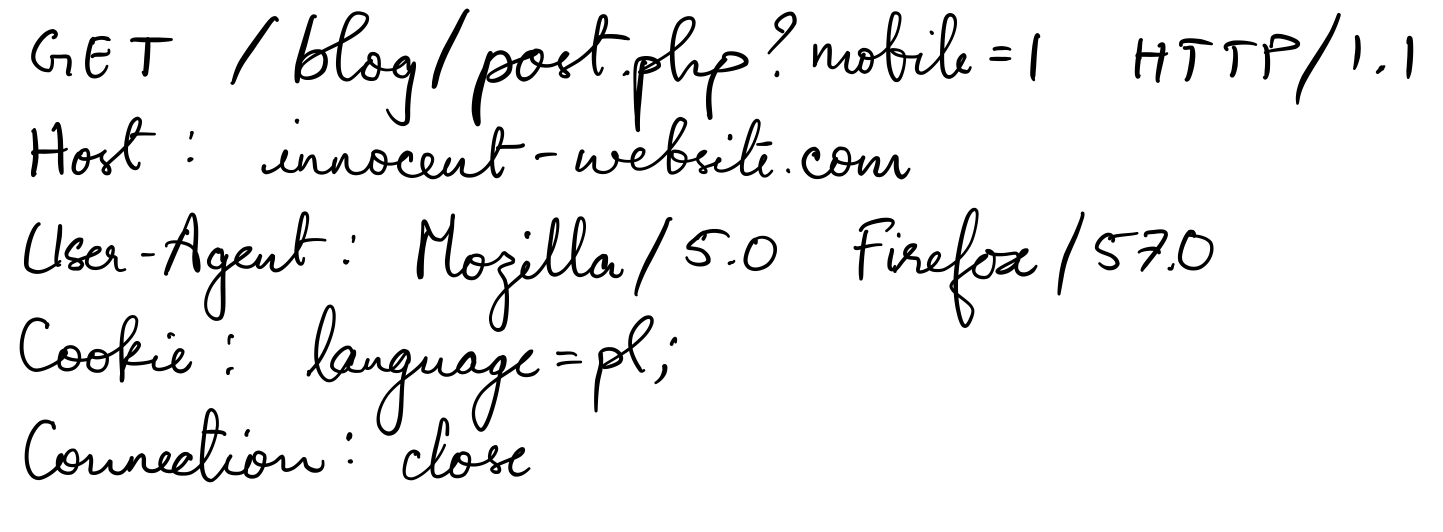 GET /blog/post.php?mobile=1 HTTP/1.1
Host: innocent-website.com
User-Agent: Mozilla/5.0 Firefox/57.0
Cookie: language=pl;
Connection: close